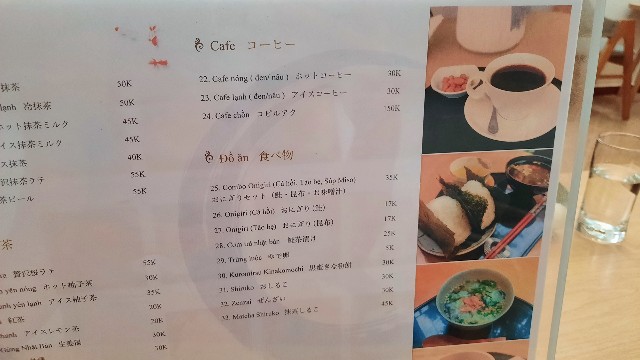 抹茶 50K
lạnh 冷抹茶 50K
ホット抹茶ミルク 45K
アイス抹茶ミルク 45K
ス抹茶 40K
抹茶ラテ 55K
茶ビール 55K
茶
55K
yên nóng ホット柚子茶 30K
yên lạnh アイス柚子茶 35K
紅茶 20K
chanh アイスレモン茶 20K
Đừng Nhật Bản 30K
Cafe コーヒー
22. Cafe nóng ( đen/nâu ) ホットコーヒー 30K
23. Cafe lạnh ( đen/nâu ) アイスコーヒー 30K
24. Cafe chồn コピルアク 150K
Đồ ăn 食べ物
25. Combo Onigiri (Cá hồi, Tảo bẹ, Súp Miso) 35K
おにぎりセット (鮭・昆布・お味噌汁)
26. Onigiri (Cá hồi) おにぎり (鮭) 17K
27. Onigiri (Tảo bẹ) おにぎり (昆布) 17K
28. Cơm cá nhật bản 鮭茶漬け 25K
29. Trứng luộc ゆで卵 5K
30. Kuromitsu Kinakomochi 黒蜜きな粉餅 30K
31. Shiruko おしるこ 30K
32. Zenzai ぜんざい 30K
33. Matcha Shiruko 抹茶しるこ 45K